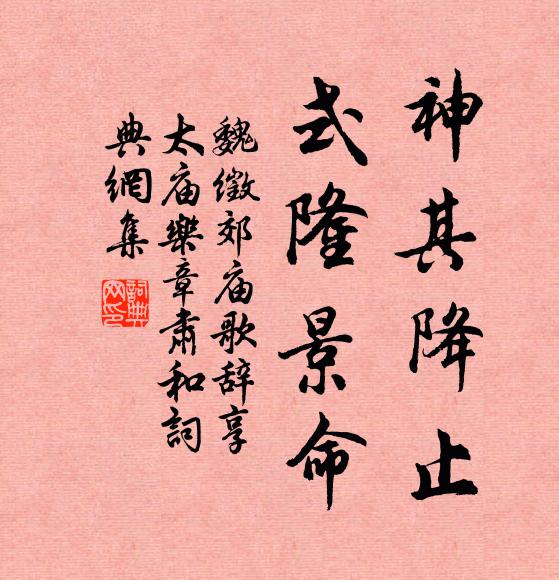 神其降止
式隆景命
魏徵郊庙歌辞享
太庙樂章肃和詞
典網集
詞典网印